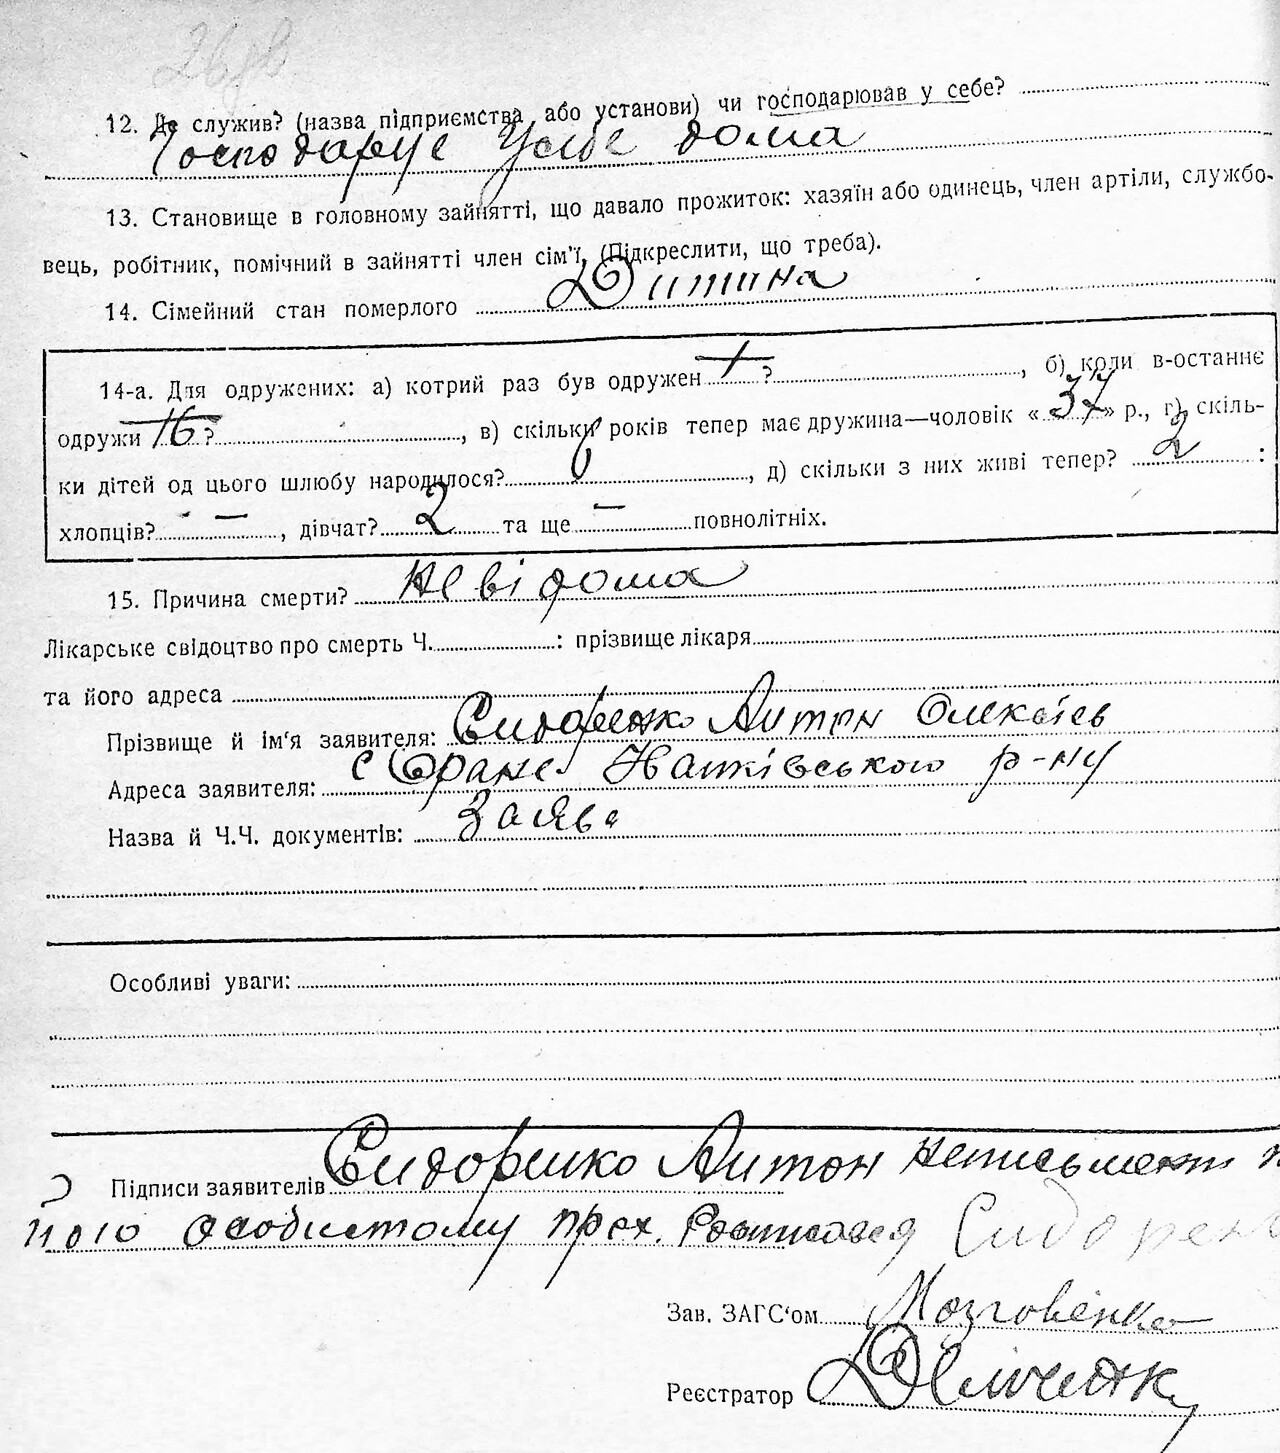 12. Де служив? (назва підприємства або установи) чи господарював у себе?
Господарує у себе дома
13. Становище в головному зайнятті, що давало прожиток: хазяїн або одинець, член артіли, службо-
вець, робітник, помічний в зайнятті член сім'ї. (Підкреслити, що треба).
14. Сімейний стан померлого Дитина
14-а. Для одружених: а) котрий раз був одружен 1 ?, б) коли в-останнє
одружи 16 ?, в) скільки років тепер має дружина—чоловік «37» р., г) скіль-
ки дітей од цього шлюбу народилося? 6, д) скільки з них живі тепер? 2 :
хлопців? —, дівчат? 2 та ще — повнолітніх.
15. Причина смерти? невідома
Лікарське свідоцтво про смерть Ч. : прізвище лікаря
та його адреса
Прізвище й ім'я заявителя: Сидоренко Антон Олексіев
Адреса заявителя: с Хатківського р-ну
Назва й Ч.Ч. документів: Заява
Особливі уваги:
Підписи заявителів Сидоренко Антон неписьмен
його особистому прох. Росписався Сидорен
Зав. ЗАГС'ом Мозговенко
Реєстратор